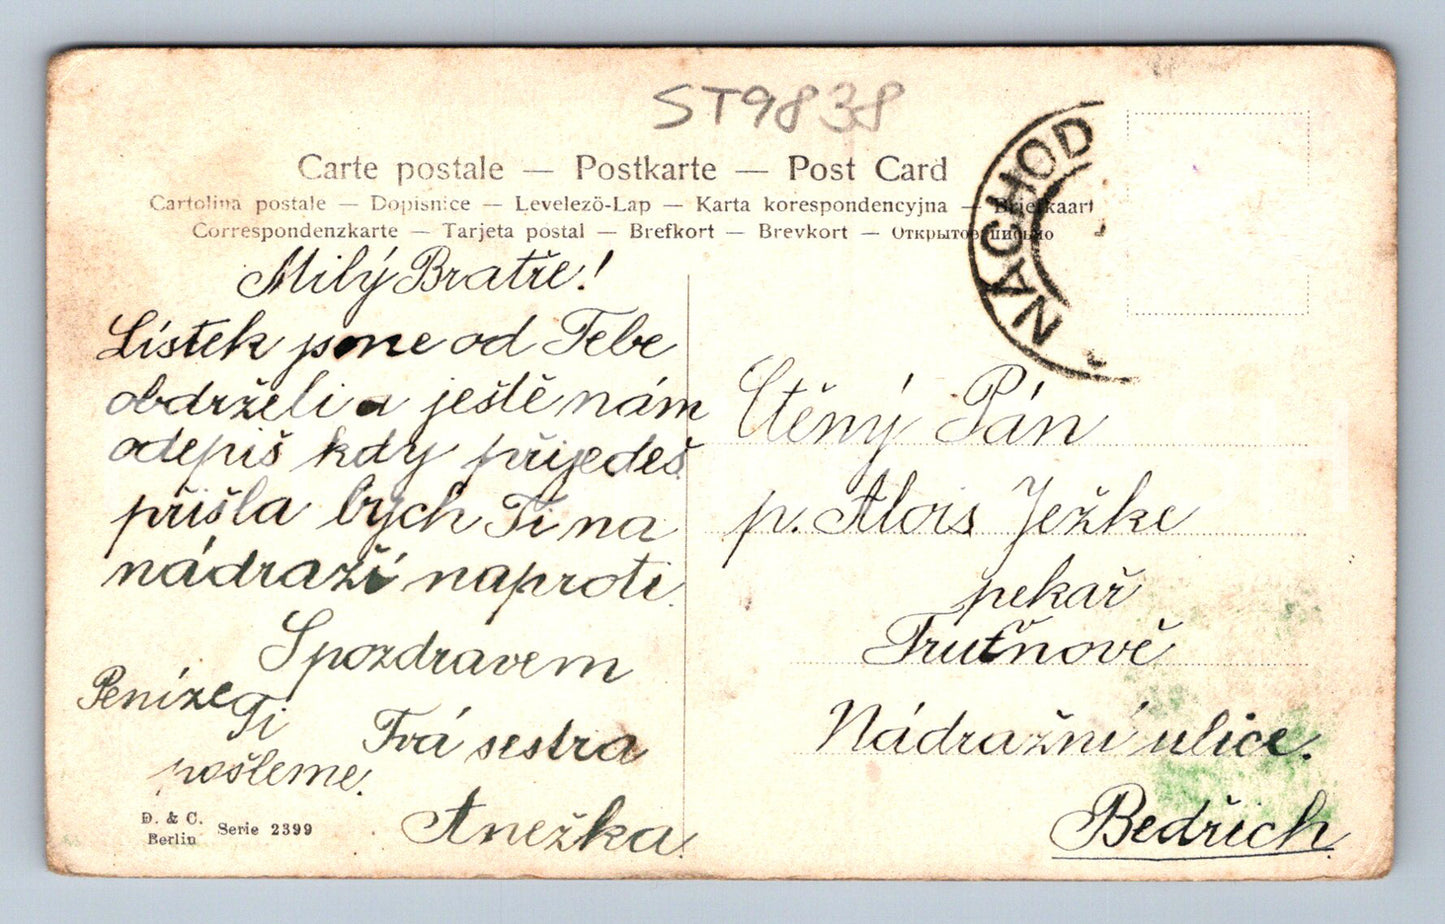 ST9838
Carte postale — Postkarte — Post Card
Cartolina postale — Dopisnice — Levelező-Lap — Karta korespondencyjna — Briefkaart
Correspondenzkarte — Tarjeta postal — Brefkort — Brevkort — Открытое письмо
NÁCHOD
Milý Bratře!
Lístek jsme od Tebe
obdrželi a ještě nám
odepiš kdy přijedeš
přišla bych Ti na
nádraží naproti.
S pozdravem
Peníze
Ti
pošleme.
Tvá sestra
Anežka.
D. & C.
Berlin
Serie 2399
Ctěný Pán
p. Alois Ježke
pekař
Trutňově
Nádražní ulice.
Bedřich